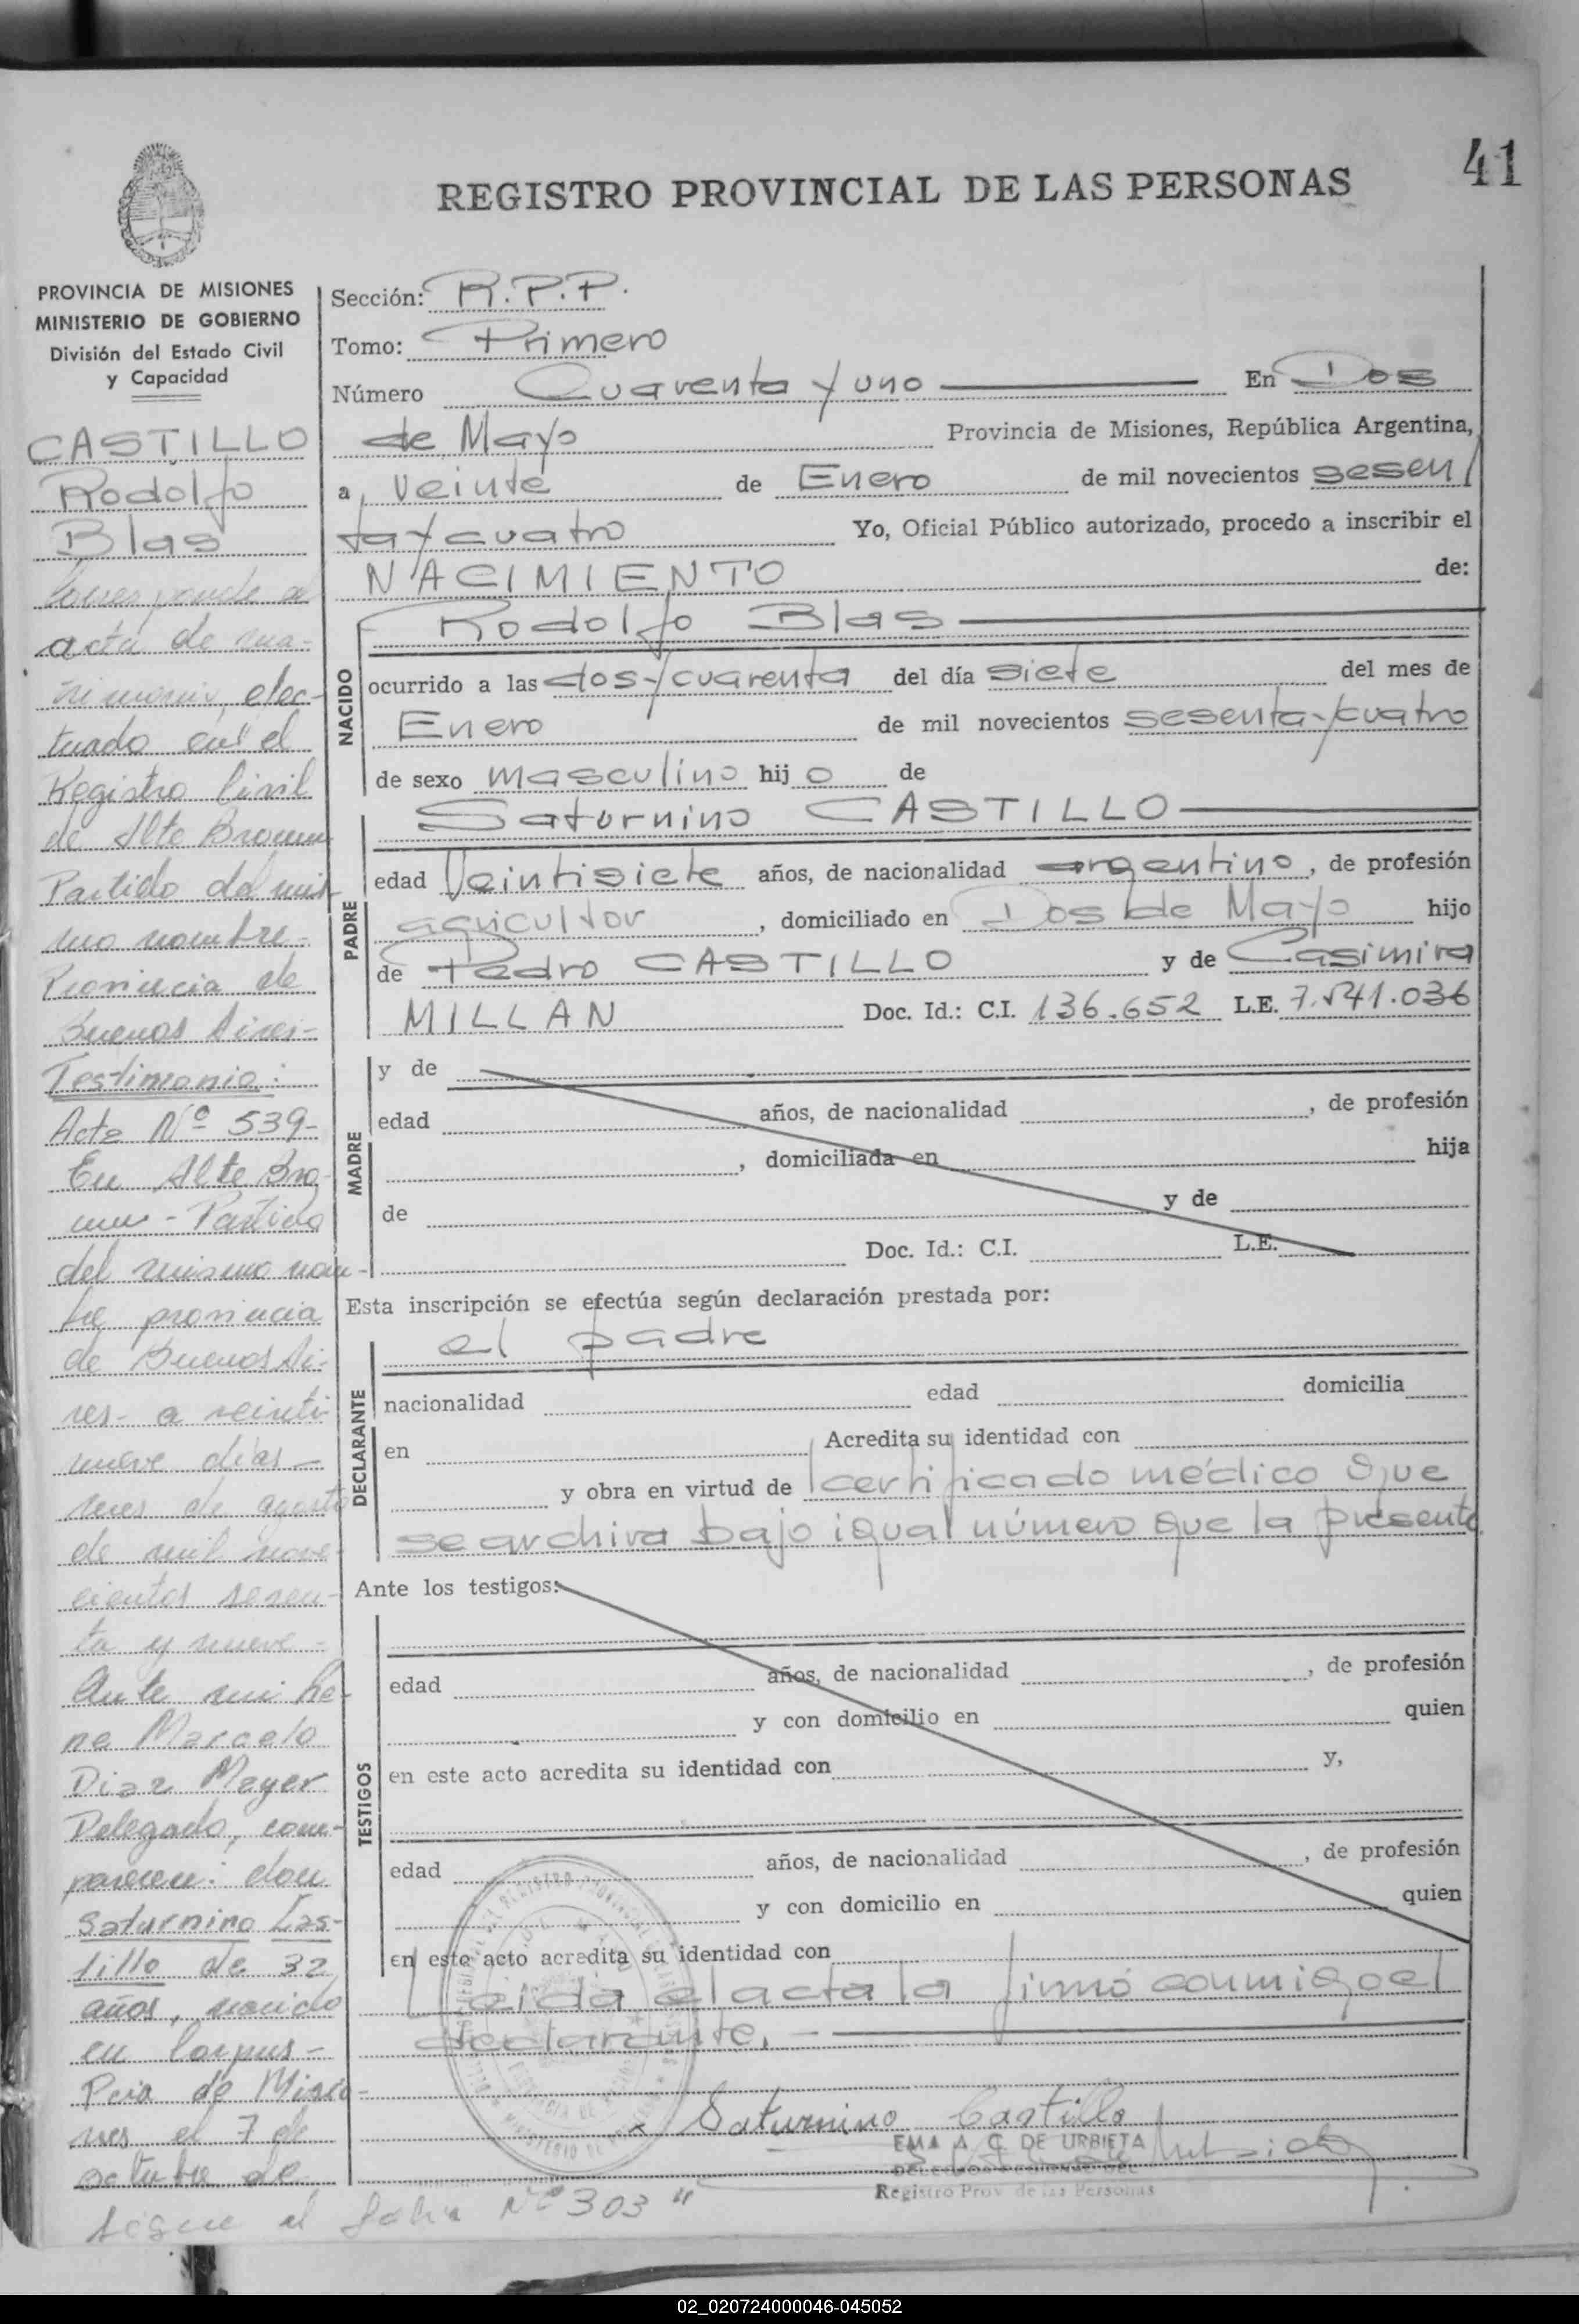 41
REGISTRO PROVINCIAL DE LAS PERSONAS
PROVINCIA DE MISIONES
MINISTERIO DE GOBIERNO
División del Estado Civil
y Capacidad
CASTILLO
Rodolfo
Blas
Corresponde al
acta de ma-
trimonio, efec-
tuado en el
Registro Civil
de Alte Brown
Partido del mis
mo nombre-
Provincia de
Buenos Aires-
Testimonio:
Acta Nº 539-
En Alte Bro
wn - Partido
del mismo nom-
bre provincia
de Buenos Ai-
res- a veinti
nueve días-
mes de agosto
de mil nove-
cientos sesen-
ta y nueve-
Ante mi
Marcelo
Diaz Mayer
Delegado, com-
parecen: don
Saturnino Cas-
tillo de 32
años, nacido
en Corpus-
Pcia de Misio-
nes el 7 de
octubre de
sigue al folio Nº 303 "
Sección: R.P.P.
Tomo: Primero
Número Cuarenta y uno En Dos
de Mayo Provincia de Misiones, República Argentina,
a Veinte de Enero de mil novecientos sesen/
ta y cuatro Yo, Oficial Público autorizado, procedo a inscribir el
NACIMIENTO de:
NACIDO
Rodolfo Blas
ocurrido a las dos y cuarenta del día siete del mes de
Enero de mil novecientos sesenta y cuatro
de sexo masculino hijo de
PADRE
Saturnino CASTILLO
edad Veintisiete años, de nacionalidad argentino, de profesión
agricultor, domiciliado en Dos de Mayo hijo
de Pedro CASTILLO y de Casimira
MILLAN Doc. Id.: C.I. 136.652 L.E. 7.541.036
MADRE
y de
edad años, de nacionalidad , de profesión
, domiciliada en hija
de y de
Doc. Id.: C.I. L.E.
Esta inscripción se efectúa según declaración prestada por:
DECLARANTE
el padre
nacionalidad edad domicilia
en Acredita su identidad con
y obra en virtud de certificado médico que
se archiva bajo igual número que la presente
Ante los testigos:
TESTIGOS
edad años, de nacionalidad , de profesión
y con domicilio en quien
en este acto acredita su identidad con y,
edad años, de nacionalidad , de profesión
y con domicilio en quien
en este acto acredita su identidad con
Leida el acta la firmó conmigo el
declarante.
Saturnino Castillo
EMA A. C. DE URBIETA
Registro Prov. de las Personas
02_020724000046-045052